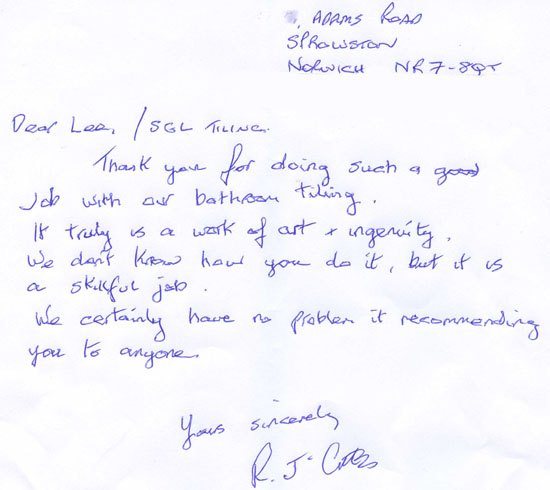 ADAMS ROAD
SPROWSTON
NORWICH NR7-8QT
Dear Lee, / SGL TILING.
Thank you for doing such a good
Job with our bathroom tiling.
It truly is a work of art + ingenuity.
We don't know how you do it, but it is
a skillful job.
We certainly have no problem it recommending
you to anyone.
Yours sincerely
R. J.